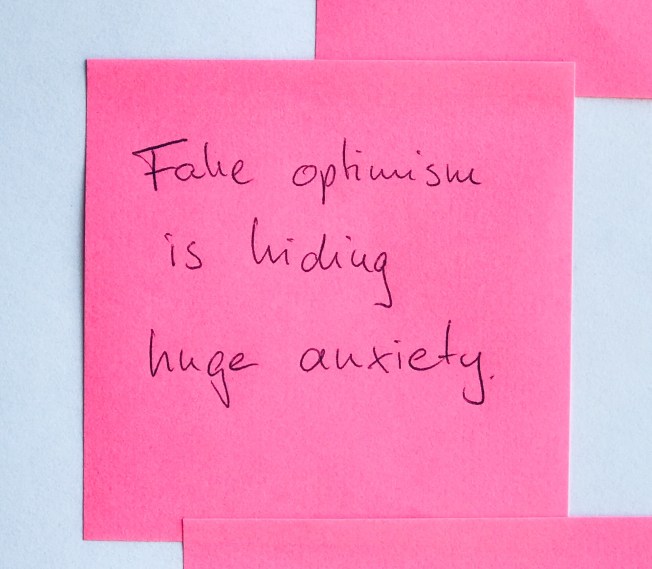 Fake optimism
is hiding
huge anxiety.